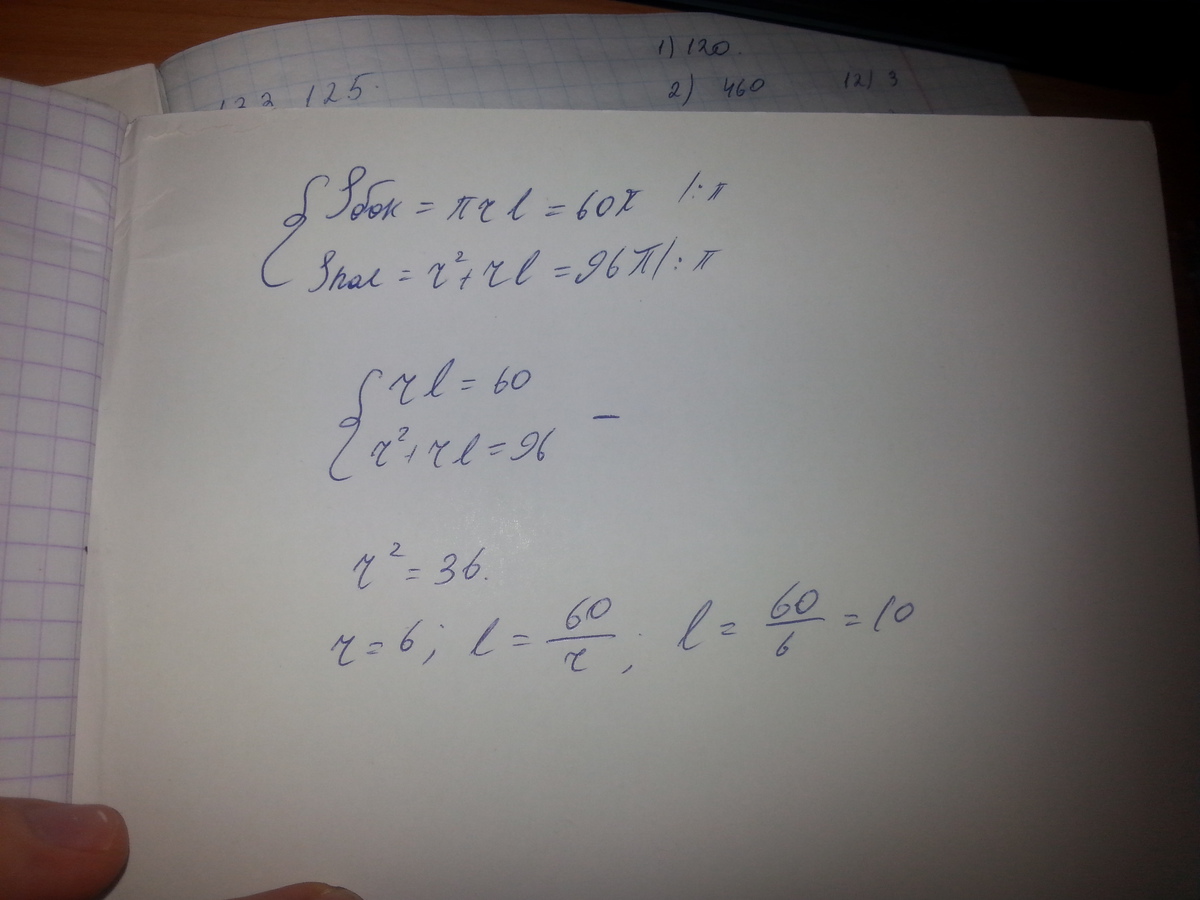 1) 120.
2) 460 12) 3
122 125.
Sбок = πrl = 60π /:π
Sпол = r²+rl = 96π/:π
rl = 60
r²+rl = 96 –
r² = 36.
r = 6; l = 60/r; l = 60/6 = 10